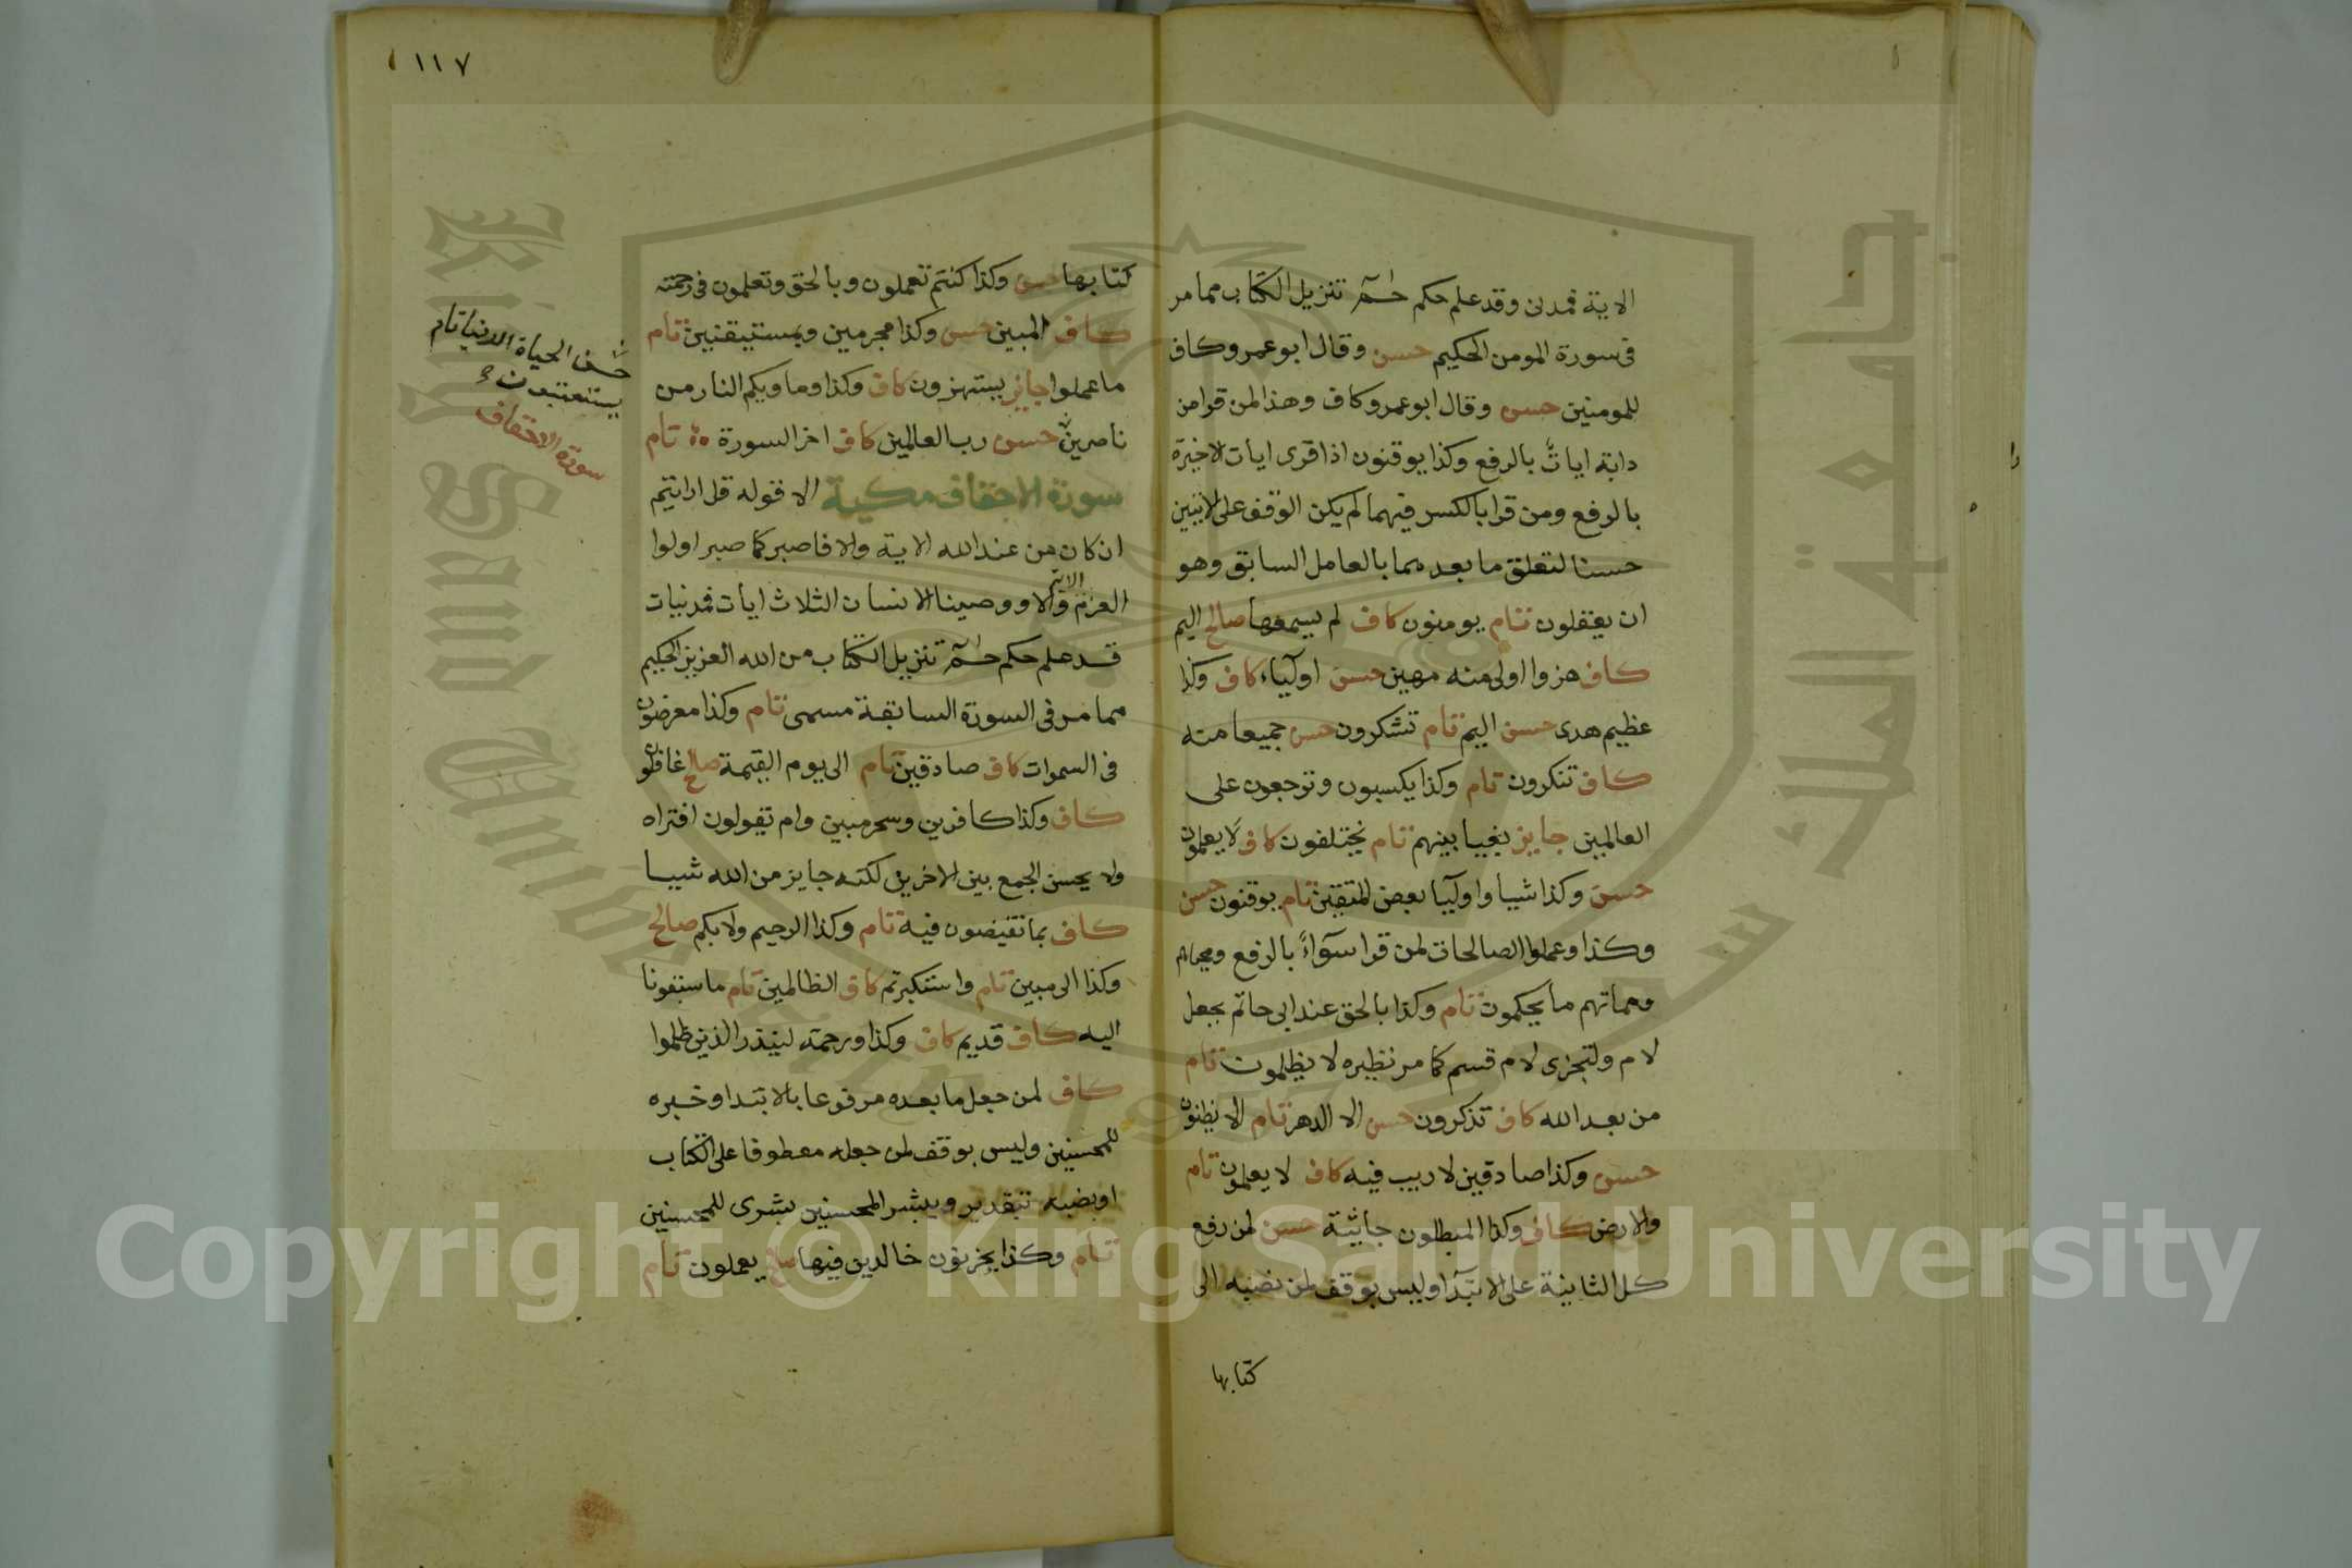 الاية فمدنى وقد علم حكم حم تنزيل الكتاب مما مر
فى سورة المومن الحكيم حسن وقال ابو عمرو كاف
للمومنين حسن وقال ابو عمرو كاف وهذا لمن قرا من
دابة ايات بالرفع وكذا يوقنون اذا قرى ايات الاخيرة
بالرفع ومن قرا بالكسر فيهما لم يكن الوقف على الايتين
حسنا لتعلق ما بعدهما بالعامل السابق وهو
ان يعقلون تام يومنون كاف لم يسمعها صالح اليم
كاف هزوا اولى منه مهين حسن اولياء كاف وكذا
عظيم هدى حسن اليم تام تشكرون حسن جميعا منه
كاف تتكرون تام وكذا يكسبون وترجعون على
العالمين جايز بغيا بينهم تام يختلفون كاف لا يعلمون
حسن وكذا شيا واوليا بعض المتقين تام يوقنون حسن
وكذا وعملوا الصالحات لمن قرا سواء بالرفع ومحياهم
ومماتهم ما يحكمون تام وكذا بالحق عند ابى حاتم بجعل
لام ولتجزى لام قسم كما مر نظيره لا يظلمون تام
من بعد الله كاف تذكرون حسن الا الدهر تام الا يظنون
حسن وكذا صادقين لا ريب فيه كاف لا يعلمون تام
والارض كاف وكذا المبطلون جاثية حسن لمن رفع
كل الثانية على الابتدا وليس بوقف لمن نصبه الى
كتابها
١١٧
كتابها حسن وكذا كنتم تعملون وبالحق وتعلمون فى رحمته
كاف المبين حسن وكذا مجرمين وبمستيقنين تام
ما عملوا جايز يستهزون كاف وكذا وماويكم النار من
ناصرين حسن رب العالمين كاف اخر السورة تام
سورة الاحقاف مكية الا قوله قل ارايتم
ان كان من عند الله الاية والا فاصبر كما صبر اولوا
العزم الاية والا ووصينا الانسان الثلاث ايات فمدنيات
قد علم حكم حم تنزيل الكتاب من الله العزيز الحكيم
مما مر فى السورة السابقة مسمى تام وكذا معرضون
فى السموات كاف صادقين تام الى يوم القيمة صالح غافلون
كاف وكذا كافرين وسحر مبين وام تقولون افتراه
ولا يحسن الجمع بين الاخرين لكنه جايز من الله شييا
كاف بما تفيضون فيه تام وكذا الرحيم ولا بكم صالح
وكذا الى مبين تام واستكبرتم كاف الظالمين تام ما سبقونا
اليه كاف قديم كاف وكذا ورحمة لينذر الذين ظلموا
كاف لمن جعل ما بعده مرفوعا بالابتدا وخبره
للمحسنين وليس بوقف لمن جعله معطوفا على الكتاب
او بضبه تبقدير ويبشر المحسنين بشرى للمحسنين
تام وكذا يحزنون خالدين فيها صالح يعملون تام
حسن الحياة الدنيا تام
يستعتبون
سورة الاحقاف
Copyright © King Saud University
جامعة الملك سعود
King Saud University